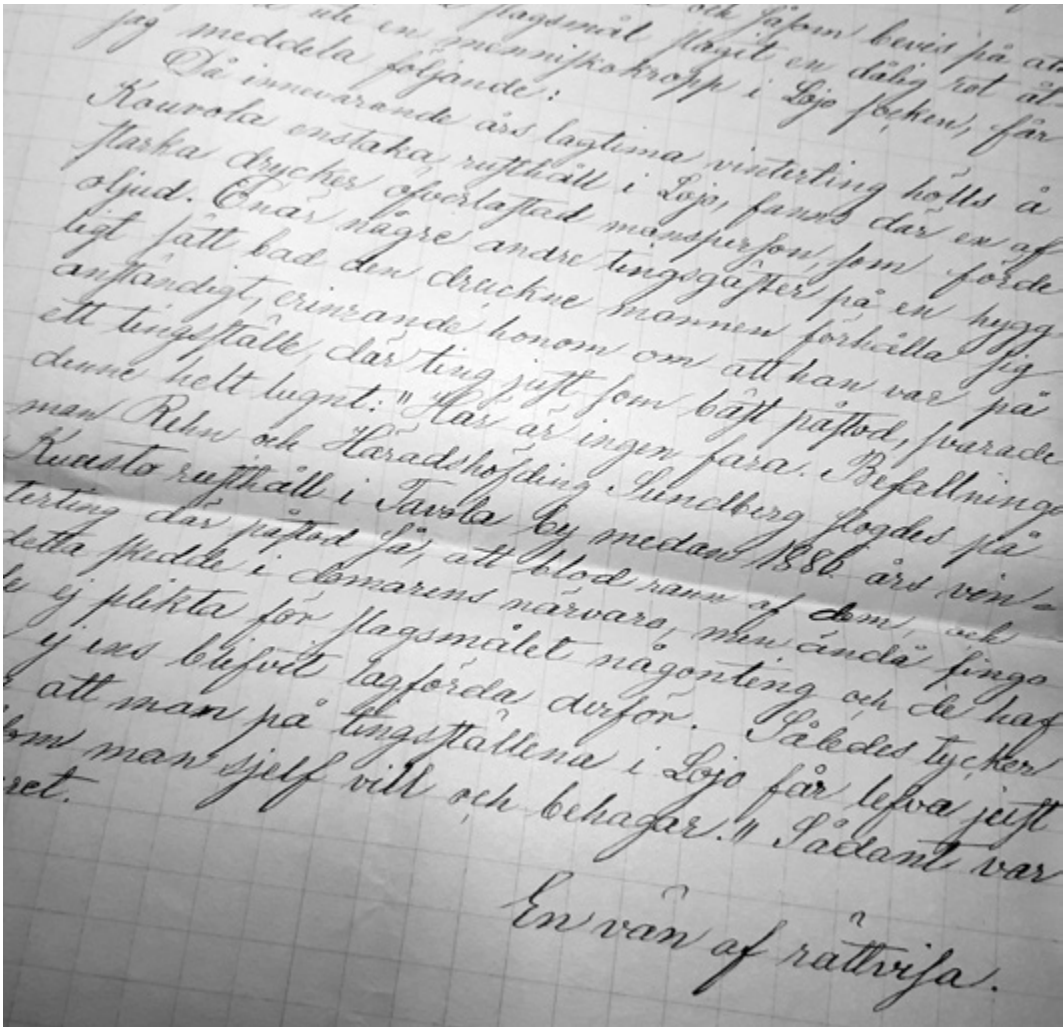 och såsom bevis på att
slagsmål slagit en dålig rot åt
ute en menniskokropp i Lojo socken, får
jag meddela följande:
Då innevarande års lagtima vinterting hölls å
Kouvola enstaka rusthåll i Lojo, fanns där en af
starka drycker öfverlastad mansperson, som förde
oljud. Enär någre andre tingsgäster på en hygg
ligt sätt bad den druckne mannen förhålla sig
anständigt, erinrande honom om att han var på
ett tingsställe, där ting just som bäst påstod, svarade
denne helt lugnt: "Här är ingen fara. Befallnings
man Rehn och Häradshöfding Sundberg slogdes på
Kuusto rusthåll i Tavola by medan 1886 års vin-
terting där påstod så, att blod rann af dem, och
detta skedde i domarens närvaro, men ändå fingo
de ej plikta för slagsmålet någonting och de haf
ej ens blifvit lagförda derför. Således tycker
att man på tingsställena i Lojo får lefva just
som man sjelf vill och behagar." Sådant var
ret.
En vän af rättvisa.